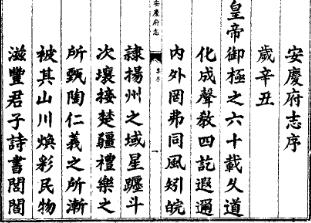 安慶府志序
歲辛丑
皇帝御極之六十載久道
化成聲教四訖遐邇
內外罔弗同風矧皖
安慶府志
隷揚州之域星躔斗
次壤接楚疆禮樂之
所甄陶仁義之所漸
被其山川煥彩民物
滋豐君子詩書誾誾